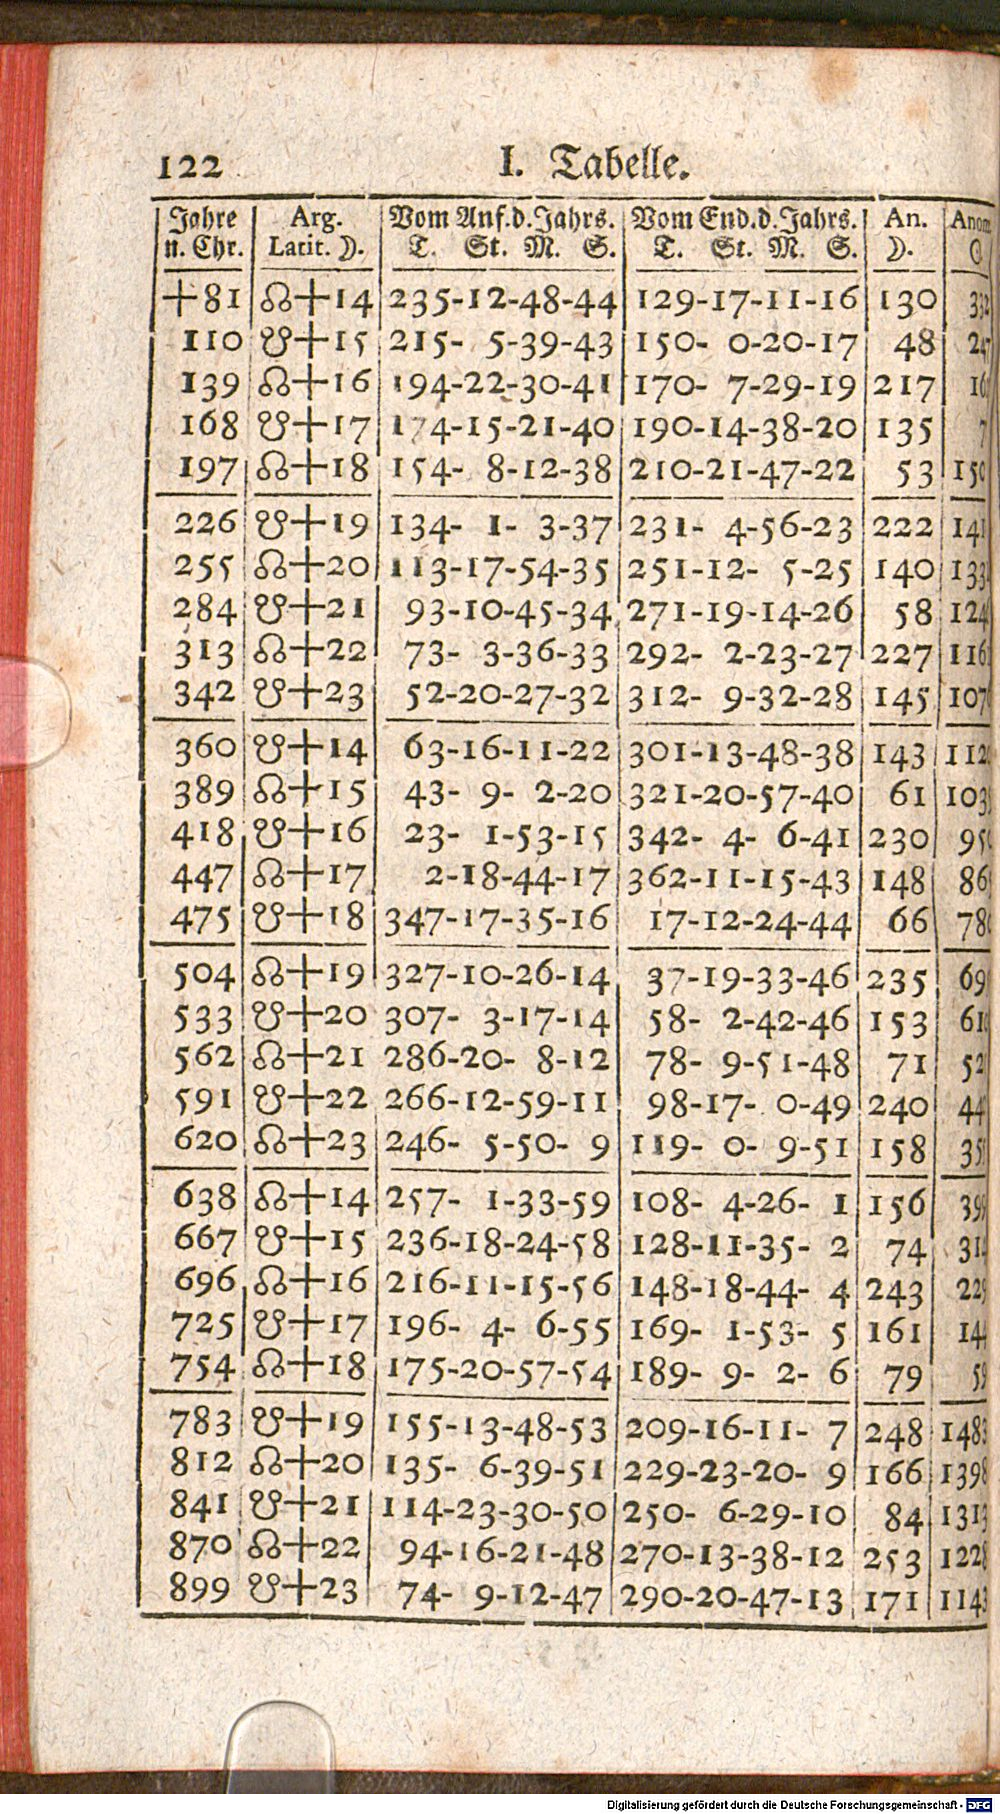 122 I. Tabelle.
Jahre Arg. Vom Anf.d.Jahrs. Vom End.d.Jahrs. An. Anom
n. Chr. Latit. ☽. T. St. M. S. T. St. M. S. ☽.
+81 ☊+14 235-12-48-44 129-17-11-16 130 332
110 ☋+15 215- 5-39-43 150- 0-20-17 48 247
139 ☊+16 194-22-30-41 170- 7-29-19 217 16
168 ☋+17 174-15-21-40 190-14-38-20 135 7
197 ☊+18 154- 8-12-38 210-21-47-22 53 150
226 ☋+19 134- 1- 3-37 231- 4-56-23 222 141
255 ☊+20 113-17-54-35 251-12- 5-25 140 133
284 ☋+21 93-10-45-34 271-19-14-26 58 124
313 ☊+22 73- 3-36-33 292- 2-23-27 227 116
342 ☋+23 52-20-27-32 312- 9-32-28 145 107
360 ☋+14 63-16-11-22 301-13-48-38 143 112
389 ☊+15 43- 9- 2-20 321-20-57-40 61 103
418 ☋+16 23- 1-53-15 342- 4- 6-41 230 95
447 ☊+17 2-18-44-17 362-11-15-43 148 86
475 ☋+18 347-17-35-16 17-12-24-44 66 78
504 ☊+19 327-10-26-14 37-19-33-46 235 69
533 ☋+20 307- 3-17-14 58- 2-42-46 153 61
562 ☊+21 286-20- 8-12 78- 9-51-48 71 52
591 ☋+22 266-12-59-11 98-17- 0-49 240 44
620 ☊+23 246- 5-50- 9 119- 0- 9-51 158 35
638 ☊+14 257- 1-33-59 108- 4-26- 1 156 39
667 ☋+15 236-18-24-58 128-11-35- 2 74 31
696 ☊+16 216-11-15-56 148-18-44- 4 243 22
725 ☋+17 196- 4- 6-55 169- 1-53- 5 161 14
754 ☊+18 175-20-57-54 189- 9- 2- 6 79 5
783 ☋+19 155-13-48-53 209-16-11- 7 248 1483
812 ☊+20 135- 6-39-51 229-23-20- 9 166 1398
841 ☋+21 114-23-30-50 250- 6-29-10 84 1313
870 ☊+22 94-16-21-48 270-13-38-12 253 1228
899 ☋+23 74- 9-12-47 290-20-47-13 171 1143
Digitalisierung gefördert durch die Deutsche Forschungsgemeinschaft - DFG